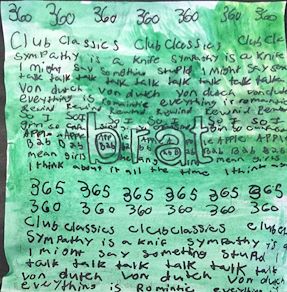 360 360 360 360 360 360
Club Classics Club Classics Club Cla
Sympathy is a Knife Sympathy is a Knife
I might say something stupid I might say som
talk talk talk talk talk talk talk
Von dutch von dutch von dutch von dutch
everything is romantic everything is romantic
Rewind Rewind Rewind Rewind
So I So I So I
brat
mean girls
I think about it all the time I think
365 365 365 365 365 365
360 360 360 360 360 360
Club classics clcubclassics cluboc
Sympathy is a knife sympathy is a
I might say something stupid I
talk talk talk talk talk talk
von dutch von dutch von du
everything is Romantic everything is